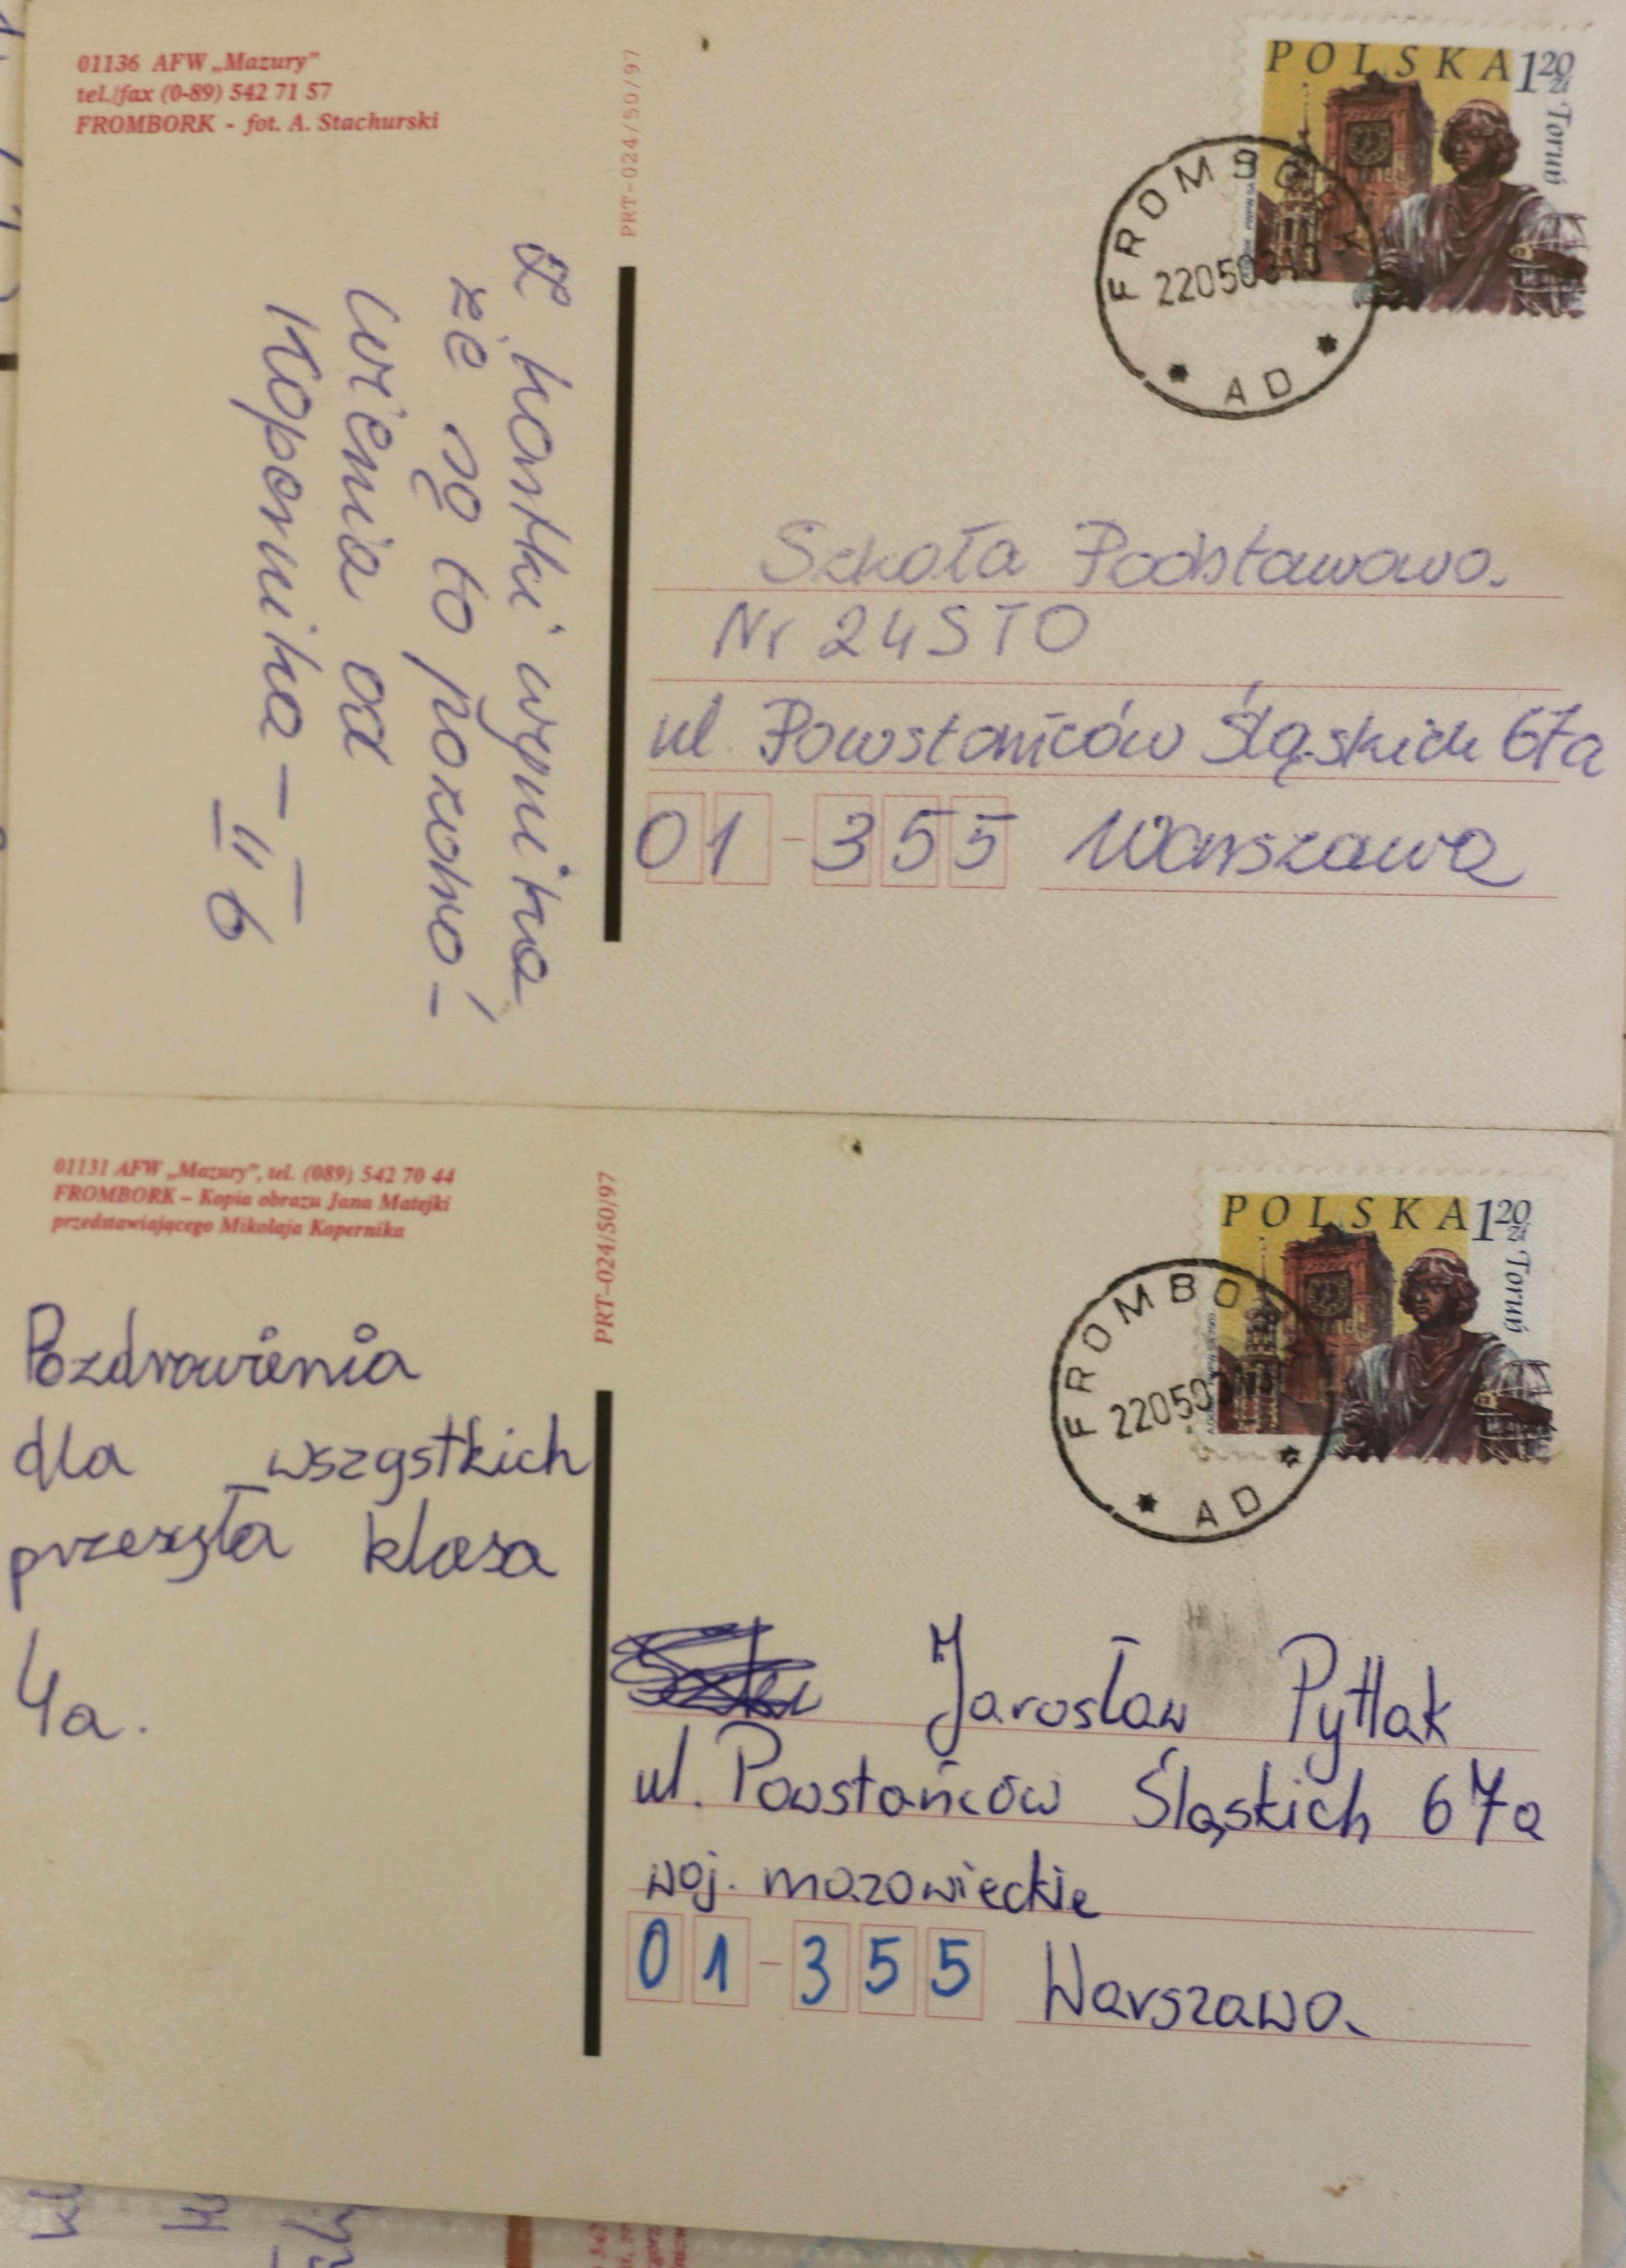 01136 AFW „Mazury”
tel./fax (0-89) 542 71 57
FROMBORK - fot. A. Stachurski
PRT-024/50/97
POLSKA 1 20 zł
Toruń
FROMBORK
220503
AD
Z kartki wynika
że są to pozdro-
wienia od
Kopernika –
II 6
Szkoła Podstawowa
Nr 24 STO
ul. Powstańców Śląskich 67a
01-355 Warszawa
01131 AFW „Mazury”, tel. (089) 542 70 44
FROMBORK – Kopia obrazu Jana Matejki
przedstawiającego Mikołaja Kopernika
PRT-024/50/97
POLSKA 1 20 zł
Toruń
FROMBO
220503
AD
Pozdrowienia
dla wszystkich
przesyła klasa
4a.
Jarosław Pytlak
ul. Powstańców Śląskich 67a
woj. mazowieckie
01-355 Warszawa